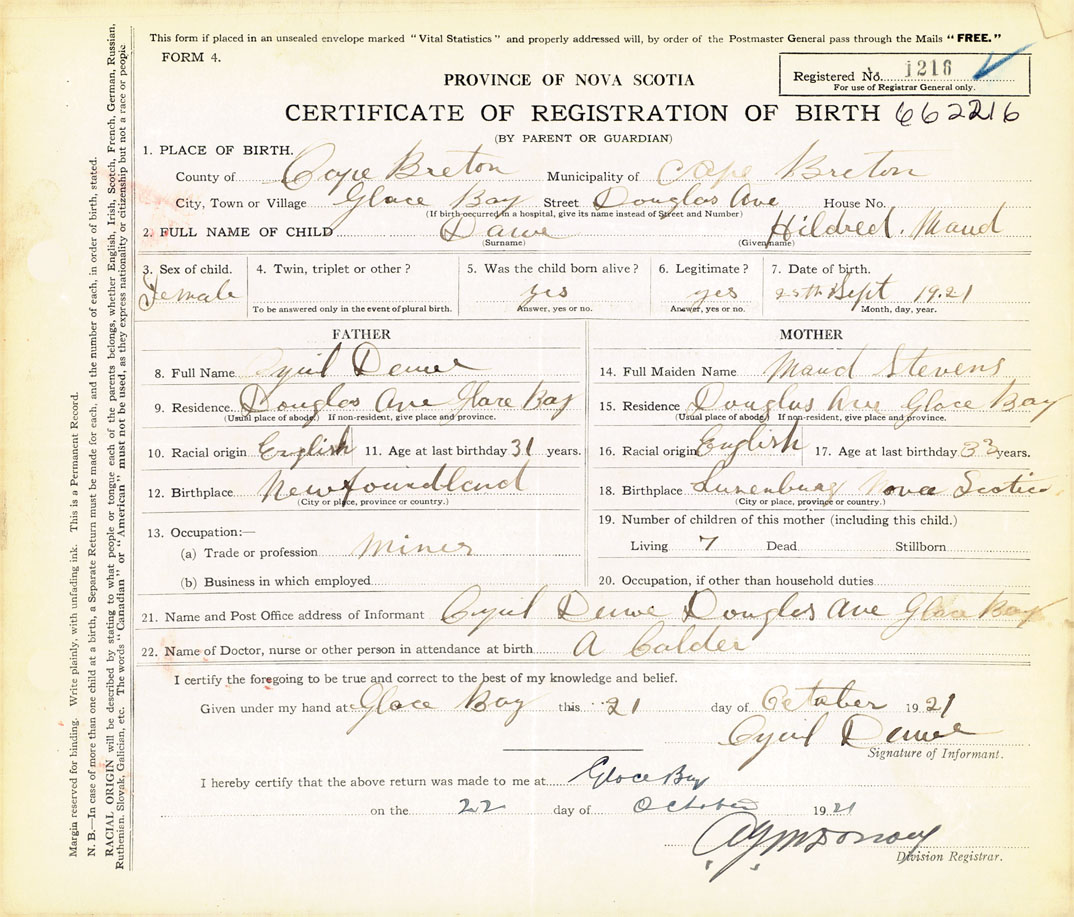 This form if placed in an unsealed envelope marked "Vital Statistics" and properly addressed will, by order of the Postmaster General pass through the Mails "FREE."
FORM 4.
Registered No. 1216
For use of Registrar General only.
PROVINCE OF NOVA SCOTIA
CERTIFICATE OF REGISTRATION OF BIRTH 662216
(BY PARENT OR GUARDIAN)
1. PLACE OF BIRTH.
County of Cape Breton Municipality of Cape Breton
City, Town or Village Glace Bay Street Douglas Ave House No.
(If birth occurred in a hospital, give its name instead of Street and Number)
2. FULL NAME OF CHILD Dawe Hildred. Maud
(Surname) (Given name)
3. Sex of child. 4. Twin, triplet or other? 5. Was the child born alive? 6. Legitimate? 7. Date of birth.
Female yes yes 25th Sept 19.21
To be answered only in the event of plural birth. Answer, yes or no. Answer, yes or no. Month, day, year.
FATHER
8. Full Name Cyril Dawe
9. Residence Douglas Ave Glace Bay
(Usual place of abode) If non-resident, give place and province.
10. Racial origin English 11. Age at last birthday 31 years.
12. Birthplace Newfoundland
(City or place, province or country.)
13. Occupation:—
(a) Trade or profession Miner
(b) Business in which employed
MOTHER
14. Full Maiden Name Maud Stevens
15. Residence Douglas Ave Glace Bay
(Usual place of abode) If non-resident, give place and province.
16. Racial origin English 17. Age at last birthday 33 years.
18. Birthplace Lunenburg Nova Scotia
(City or place, province or country.)
19. Number of children of this mother (including this child.)
Living 7 Dead Stillborn
20. Occupation, if other than household duties
21. Name and Post Office address of Informant Cyril Dawe Douglas Ave Glace Bay
22. Name of Doctor, nurse or other person in attendance at birth A Calder
I certify the foregoing to be true and correct to the best of my knowledge and belief.
Given under my hand at Glace Bay this 21 day of October 19 21
Cyril Dawe
Signature of Informant.
I hereby certify that the above return was made to me at Glace Bay
on the 22 day of October 19 21
Division Registrar.
Margin reserved for binding. Write plainly, with unfading ink. This is a Permanent Record.
N. B.—In case of more than one child at a birth, a Separate Return must be made for each, and the number of each, in order of birth, stated.
RACIAL ORIGIN will be described by stating to what people or tongue each of the parents belongs, whether English, Irish, Scotch, French, German, Russian,
Ruthenian, Slovak, Galician, etc. The words "Canadian" or "American" must not be used, as they express nationality or citizenship but not a race or people